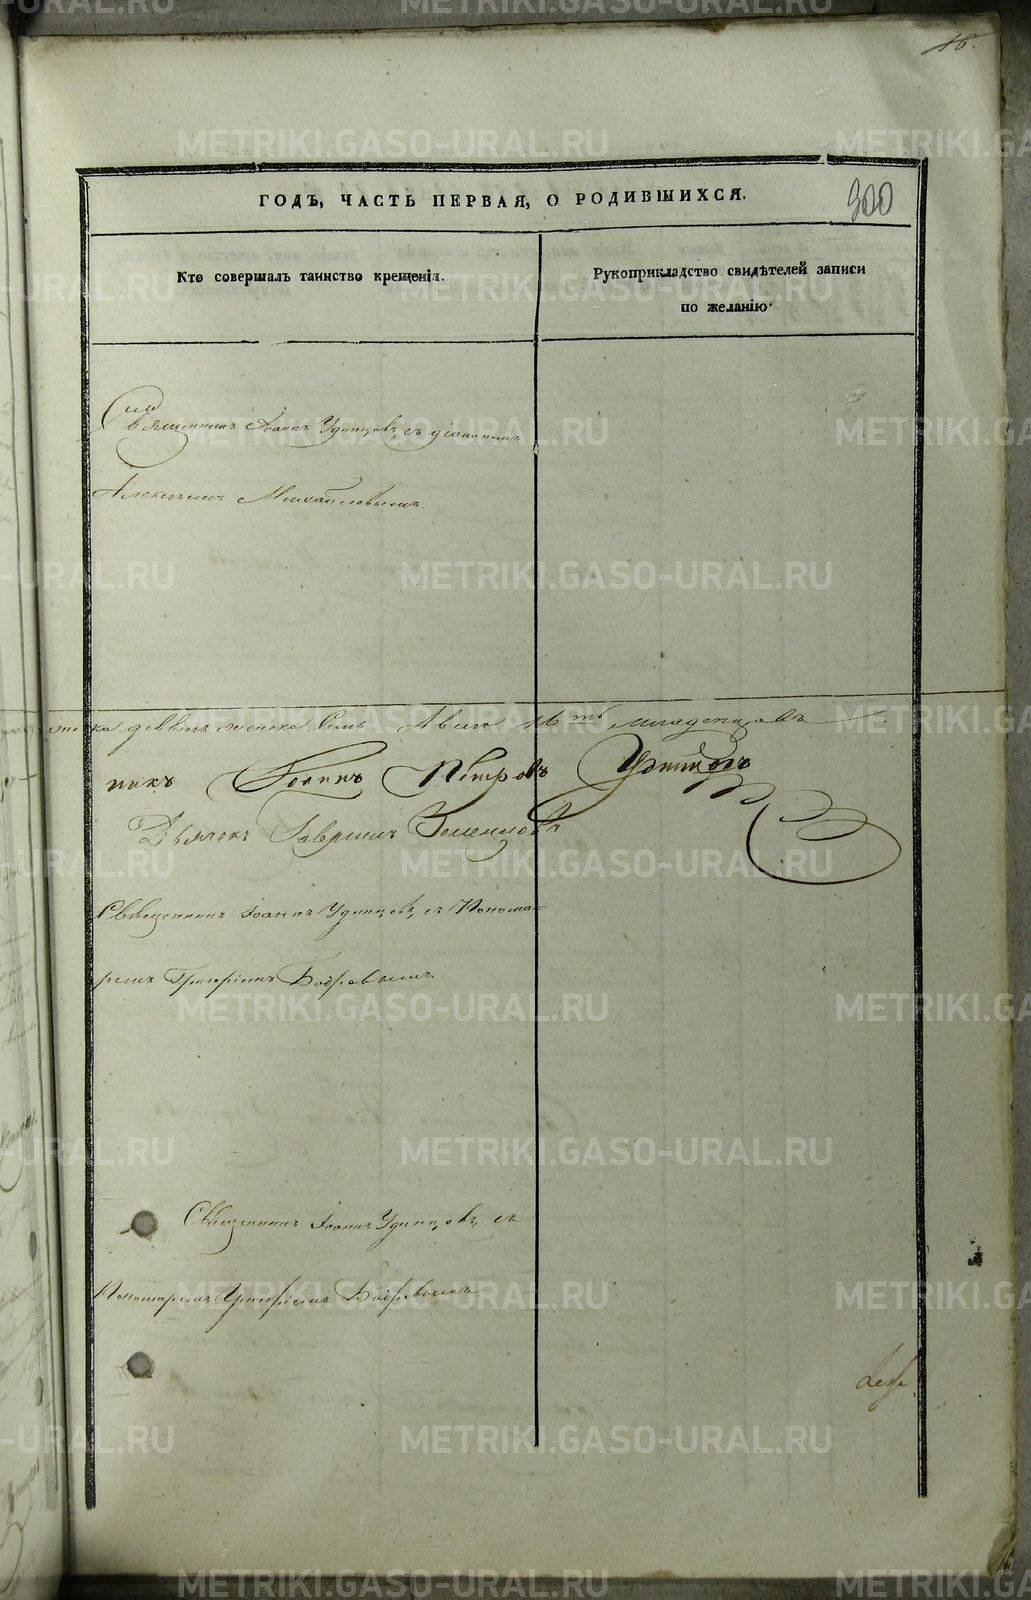 16.
ГОДЪ, ЧАСТЬ ПЕРВАЯ, О РОДИВШИХСЯ.
300
Кто совершалъ таинство крещенія.
Рукоприкладство свидѣтелей записи
по желанію
Священникъ Іоаннъ Удинцовъ, съ діакономъ
Алексѣемъ Михайловымъ.
женска семь Всего 16ть младенцовъ
никъ Іоаннъ Петровъ Удинцовъ
Дьячекъ Гавріилъ
Священникъ Іоаннъ Удинцовъ, съ Понома-
ремъ Григоріемъ Бобровымъ.
Священникъ Іоаннъ Удинцовъ, съ
Пономаремъ Григоріемъ Бобровымъ
METRIKI.GASO-URAL.RU